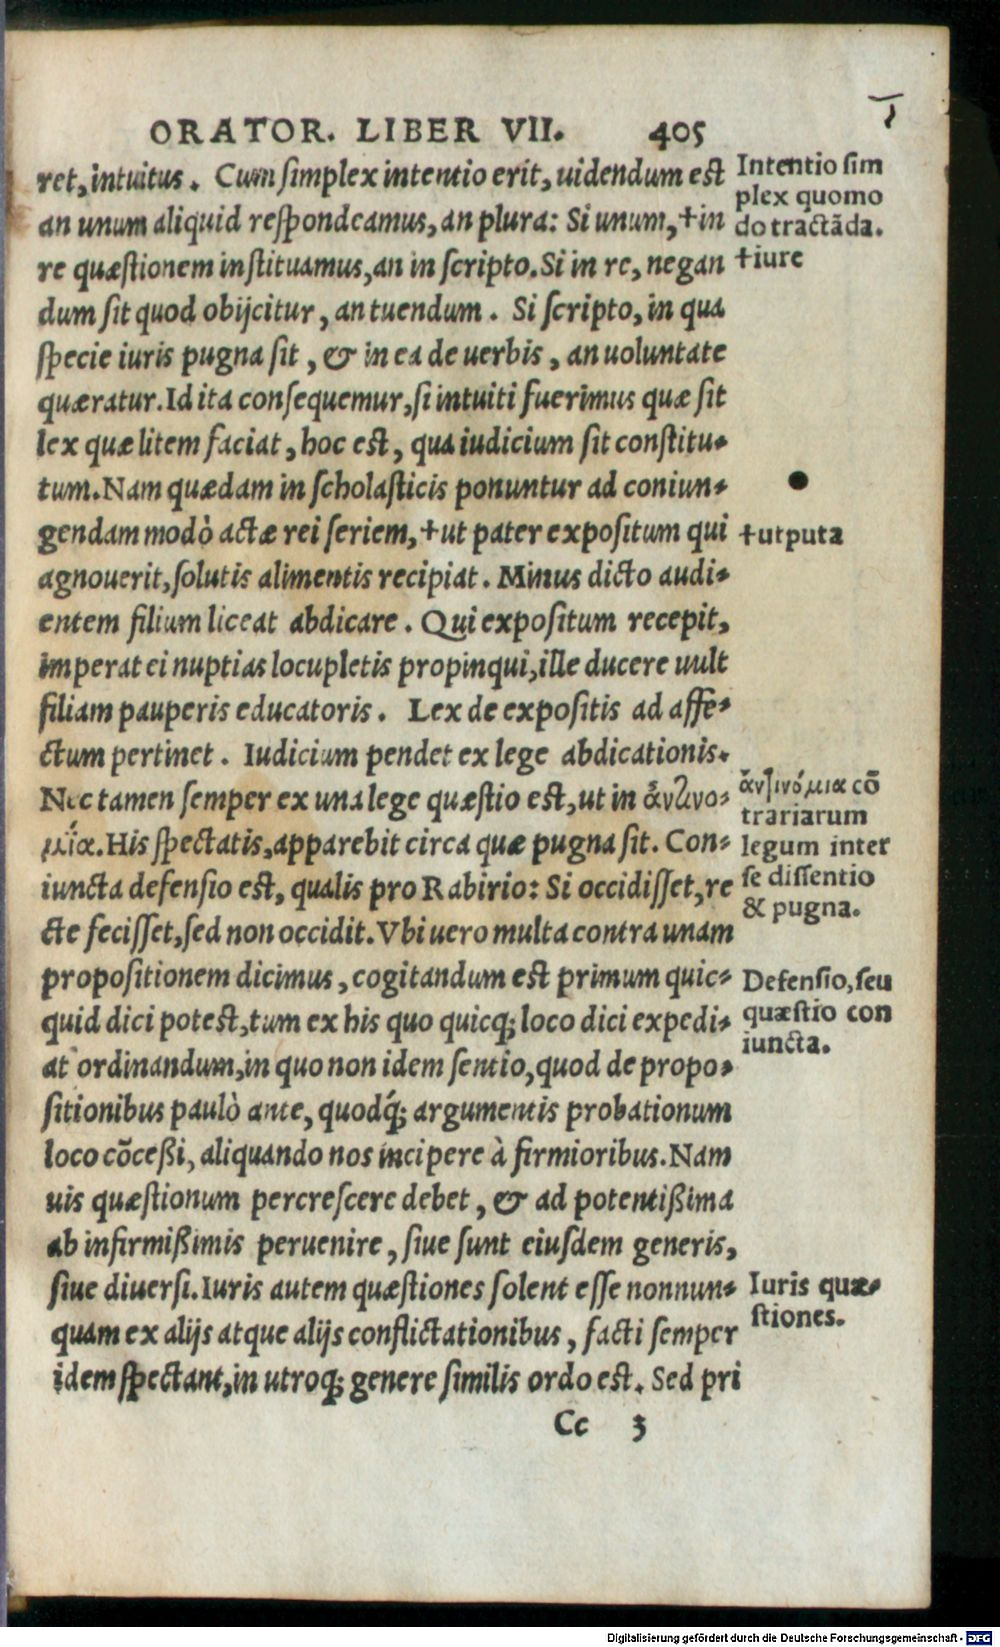 ORATOR. LIBER VII. 405
ret, intuitus. Cum simplex intentio erit, uidendum est
an unum aliquid respondeamus, an plura: Si unum, †in
re quæstionem instituamus, an in scripto. Si in re, negan
dum sit quod obijcitur, an tuendum. Si scripto, in qua
specie iuris pugna sit, & in ea de uerbis, an uoluntate
quæratur. Id ita consequemur, si intuiti fuerimus quæ sit
lex quæ litem faciat, hoc est, qua iudicium sit constitu-
tum. Nam quædam in scholasticis ponuntur ad coniun-
gendam modò actæ rei seriem, †ut pater expositum qui
agnouerit, solutis alimentis recipiat. Minus dicto audi-
entem filium liceat abdicare. Qui expositum recepit,
imperat ei nuptias locupletis propinqui, ille ducere uult
filiam pauperis educatoris. Lex de expositis ad affe-
ctum pertinet. Iudicium pendet ex lege abdicationis.
Nec tamen semper ex una lege quæstio est, ut in ἀντινο-
μίᾳ. His spectatis, apparebit circa quæ pugna sit. Con-
iuncta defensio est, qualis pro Rabirio: Si occidisset, re
cte fecisset, sed non occidit. Vbi uero multa contra unam
propositionem dicimus, cogitandum est primum quic-
quid dici potest, tum ex his quo quicq; loco dici expedi-
at ordinandum, in quo non idem sentio, quod de propo-
sitionibus paulò ante, quodq́; argumentis probationum
loco cõceßi, aliquando nos incipere à firmioribus. Nam
uis quæstionum percrescere debet, & ad potentißima
ab infirmißimis peruenire, siue sunt eiusdem generis,
siue diuersi. Iuris autem quæstiones solent esse nonnun-
quam ex alijs atque alijs conflictationibus, facti semper
idem spectant, in utroq; genere similis ordo est. Sed pri
Cc 3
Intentio sim
plex quomo
do tractãda.
†iure
†utputa
ἀντινόμια cõ
trariarum
legum inter
se dissentio
& pugna.
Defensio, seu
quæstio con
iuncta.
Iuris quæ-
stiones.
Digitalisierung gefördert durch die Deutsche Forschungsgemeinschaft - DFG